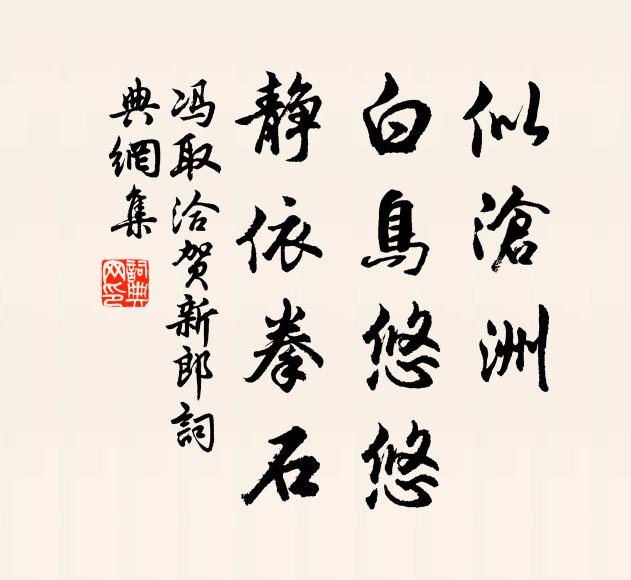 似滄洲
白鳥悠悠
静依拳石
冯取洽贺新郎詞
典網集
詞典网印